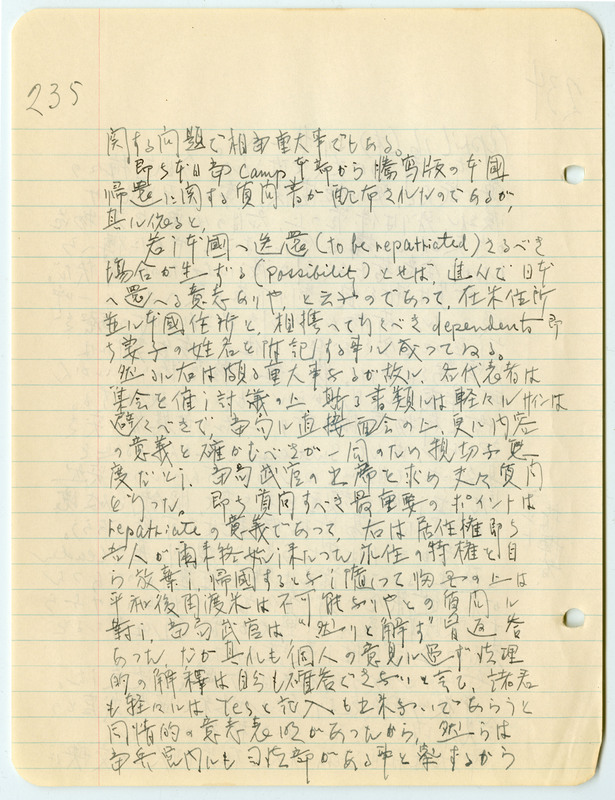 235
関する問題で相当重大事でもある。
即ち本日当camp本部から謄写版の本國
帰還に関する質問書が配布されたのであるが、
其れに依ると、
若し本國へ送還(to be repatriated)さるべき
場合が生ずる(possibility)とせば、進んで日本
へ還へる意志ありや、と云ふのであって、在米住所
並に本國住所と、相携へて行くべきdependents即
ち妻子の姓名を附記する事に成つてゐる。
然るに右は頗る重大事なるが故に、各代表者は
集会を催し討議の上、斯る書類には軽々にサインは
避くべきで、当局に直接面会の上、更に内容
の意義を確かむべきが一同のため親切な態
度だとし、当局武官の出席を求め夫々質問
を行つた。即ち質問すべき最重要のポイントは
repatriateの意義であつて、右は居住権即ち
吾人が 永住の特権を自
ら放棄し、帰國すると云ふ 上は
平和後再渡米は不可能なりやとの質問に
対し、当局武官は"然りと解す"旨返答
あつた。だが其れも個人の意見に過ぎず法理
的の解釋は自分も確答できないと言ひ、諸君
も軽々には、Yesと記入も出来ないであらうと
同情的の意志表明があつたから、然らは
当兵営内にも司法部がある事と察するから